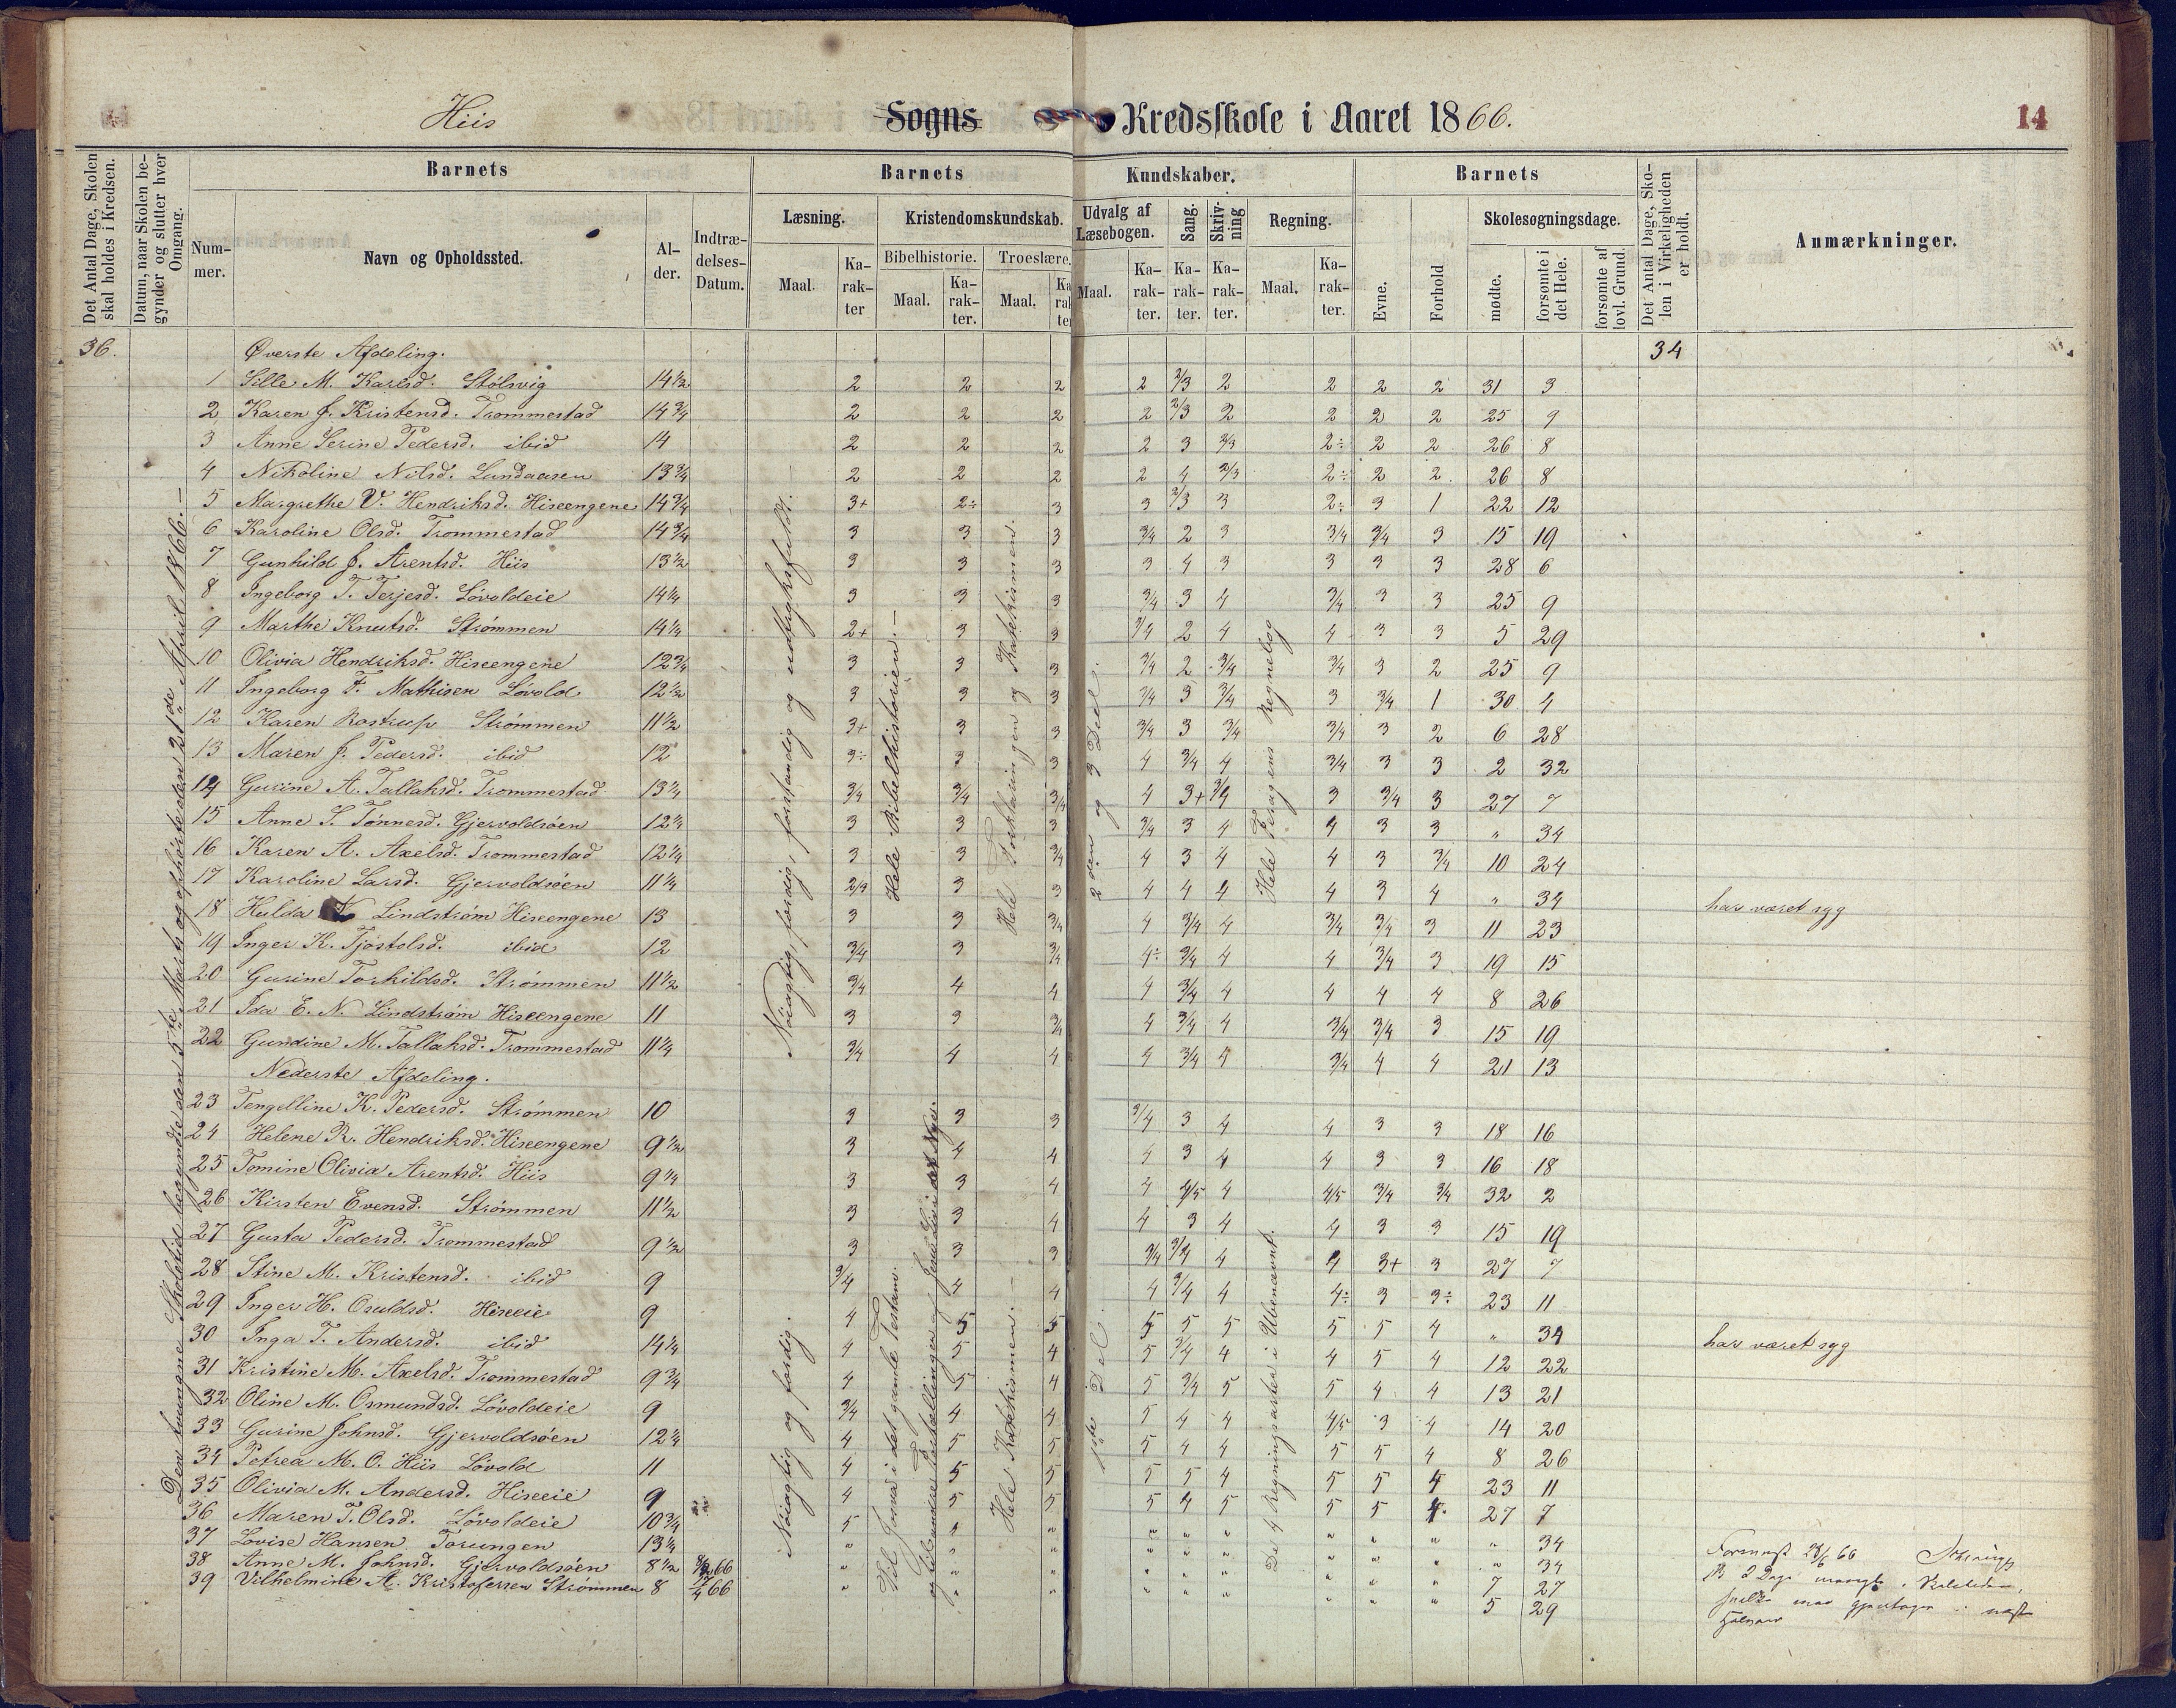 Hiis Sogns Kredsskole i Aaret 1866. 14
Det Antal Dage, Skolen skal holdes i Kredsen.
Datum, naar Skolen begynder og slutter hver Omgang.
Barnets
Nummer.
Navn og Opholdssted.
Alder.
Indtrædelses-Datum.
Barnets Kundskaber.
Læsning.
Maal.
Karakter
Kristendomskundskab.
Bibelhistorie.
Maal.
Karakter.
Troeslære.
Maal.
Karakter
Udvalg af Læsebogen.
Maal.
Karakter.
Sang.
Karakter.
Skrivning
Karakter.
Regning.
Maal.
Karakter.
Barnets
Evne.
Forhold
Skolesøgningsdage.
mødte.
forsømte i det Hele.
forsømte af lovl. Grund.
Det Antal Dage, Skolen i Virkeligheden er holdt.
Anmærkninger.
36. Øverste Afdeling. 34
1 Sille M. Karlsd. Stølsvig 14½ 2 2 2 2 2/3 2 2 2 2 31 3
2 Karen J. Kristensd. Trommestad 14¾ 2 2 2 2 2/3 2 2 2 2 25 9
3 Anne Serine Pedersd. ibid 14 2 2 2 2 3 2/3 2÷ 2 2 26 8
4 Nikoline Nilsd. Lundaasen 13¾ 2 2 2 2 4 2/3 2÷ 2 2 26 8
5 Margrethe V. Hendriksd. Hiseengene 14¾ 3+ 2÷ 3 3 2/3 3 2÷ 3 1 22 12
6 Karoline Olsd. Trommestad 14¾ 3 3 3 3/4 2 3 3/4 3/4 3 15 19
7 Gunhild J. Arentsd. Hiis 13½ 3 3 3 3 4 3 3 3 3 28 6
8 Ingeborg T. Terjesd. Løvoldeie 14¼ 3 3 3 3/4 3 4 3/4 3 3 25 9
9 Marthe Knutsd. Strømmen 14¼ 2+ 3 3 3/4 2 4 4 3 3 5 29
10 Olivia Hendriksd. Hiseengene 12¾ 3 3 3 3/4 2 3/4 3/4 3 2 25 9
11 Ingeborg F. Mathisen Løvold 12½ 3 3 3 3/4 3 3/4 3 3/4 1 30 4
12 Karen Rostrup Strømmen 11½ 3+ 3 3 3/4 3 3/4 3/4 3 2 6 28
13 Maren J. Pedersd. ibid 12 3÷ 3 3 4 3/4 4 3/4 3 3 2 32
14 Gurine A. Tallaksd. Trommestad 13¼ 3/4 3/4 3/4 4 3+ 3/4 3 3/4 3 27 7
15 Anne S. Tønnesd. Gjervoldsøen 12¼ 3 3 3 3/4 3 4 4 3 3 " 34
16 Karen A. Axelsd. Trommestad 12¼ 3 3 3/4 4 3 4 4 3 3/4 10 24
17 Karoline Larsd. Gjervoldsøen 11¼ 2/3 3 3 4 4 4 4 3 4 " 34 har været syg
18 Hulda Lindstrøm Hiseengene 13 3 3 3/4 4 3/4 4 3/4 3/4 3 11 23
19 Inger K. Tjøstolsd. ibid 12 3/4 3 3/4 4÷ 3/4 4 4 3/4 3 19 15
20 Gurine Torkildsd. Strømmen 11½ 3/4 4 4 4 3/4 4 4 4 4 8 26
21 Ida E. N. Lindstrøm Hiseengene 11 3 3 3/4 4 3/4 4 3/4 3/4 3 15 19
22 Gundine M. Tallaksd. Trommestad 11¼ 3/4 4 4 4 3/4 4 3/4 4 4 21 13
Nederste Afdeling.
23 Tengelline K. Pedersd. Strømmen 10 3 3 3 3/4 3 4 4 3 3 18 16
24 Helene R. Hendriksd. Hiseengene 9½ 3 4 4 4 3 4 4 3 3 16 18
25 Tomine Olivia Arentsd. Hiis 9¼ 3 3 4 4 4/5 4 4/5 3/4 3/4 32 2
26 Kirsten Evensd. Strømmen 11½ 3 3 4 4 3 4 4 3 3 15 19
27 Gusta Pedersd. Trommestad 9½ 3 3 3 3/4 3/4 4 4 3+ 3 27 7
28 Stine M. Kristensd. ibid 9 3/4 4 4 4 3/4 4 4÷ 3 3÷ 23 11
29 Inger H. Osuldsd. Hiseeie 9 4 5 5 5 5 5 5 5 4 " 34 har været syg
30 Inga T. Andersd. ibid 14¼ 4 5 4 5 3/4 4 4 5 4 12 22
31 Kristine M. Axelsd. Trommestad 9¾ 4 5 4 5 3/4 5 5 4 4 13 21
32 Oline M. Osmundsd. Løvoldeie 9 3/4 4 4 5 4 4 4/5 3 4 14 20
33 Gurine Johnsd. Gjervoldsøen 12¼ 4 5 5 5 4 4 5 5 4 8 26
34 Petrea M. O. Hiis Løvold 11 4 5 5 5 5 4 5 5 4 23 11
35 Olivia M. Andersd. Hiseeie 9 4 5 5 5 4 5 5 5 4 27 7
36 Maren T. Olsd. Løvoldeie 10¾ 5 4 " " " " " " " " 34
37 Lovise Hansen Torungen 13¼ " " " " " " " " " " 34
38 Anne M. Johnsd. Gjervoldsøen 8½ 66 " " " " " " " " " 7 27
39 Vilhelmine A. Kristofersen Strømmen 8 17/4 66 " " " " " " " " " 5 29
Den tvungne Skoletid begyndte den 5te Marts og ophørte den 21de April 1866.—
Nøiagtig, færdig, forstandig og udtryksfuldt.
Hele Bibelhistorien.—
Hele Forklaringen og Katekismen.
2den og 3 Deel.
Hele Feragens Regnebog
Nøiagtig og færdig.
Til Jonas i det gamle Testam.
og tilsvarende Fortællinger af Jesu Liv i det Nye.
Hele Katekismen.—
1ste Del.
De 4 Regningsarter i Ubenævnt.
28/6 66